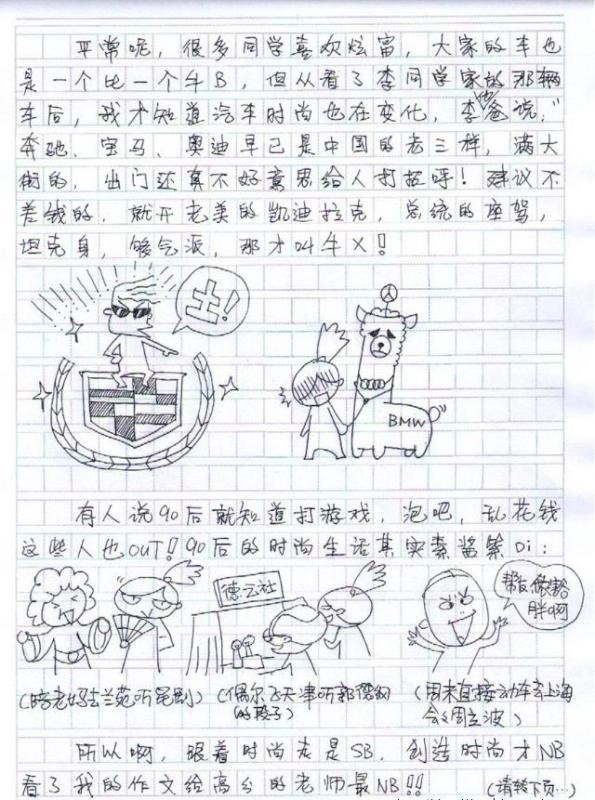 平常呢，很多同学喜欢炫富，大家的车也
是一个比一个牛B，但从看了李同学家的那辆
车后，我才知道汽车时尚也在变化，李他爸说，"
奔驰、宝马、奥迪早已是中国的老三样，满大
街的，出门还真不好意思给人打招呼！建议不
差钱的，就开老美的凯迪拉克，总统的座驾，
坦克身，够气派，那才叫牛X！
土！
BMW
有人说90后就知道打游戏，泡吧，乱花钱
这些人也OUT！90后的时尚生活其实素酱紫Di：
德云社
帮我做替
胖啊
（陪老妈去兰苑听昆剧）（偶尔飞天津听郭德纲
的段子）
（周末直接动车去上海
会会周立波）
所以啊，跟着时尚走是SB，创造时尚才NB
看了我的作文给高分的老师最NB!!
（请转下页…）